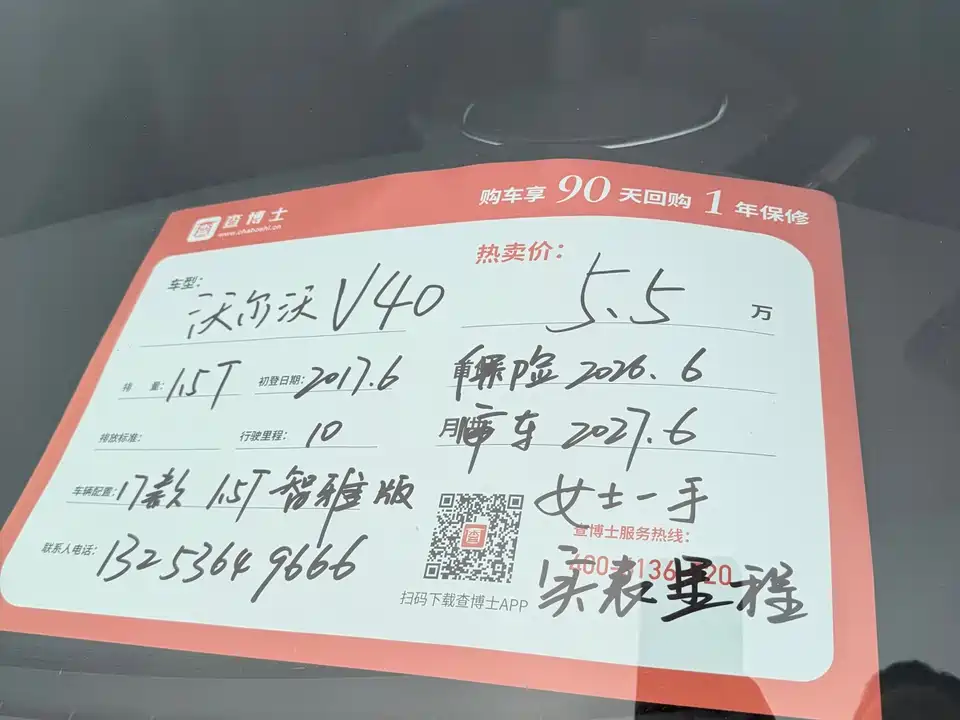 查博士
www.chaboshi.cn
购车享 90 天回购 1 年保修
车型: 沃尔沃 V40
热卖价: 5.5 万
排 量: 1.5T 初登日期: 2017.6
保险 2026.6
排放标准: 行驶里程: 10
月 审车 2027.6
车辆配置: 17款 1.5T 智雅版
女士一手
查博士服务热线:
联系人电话: 13253649666
实表里程
扫码下载查博士APP